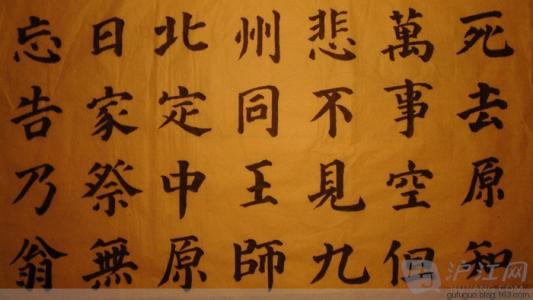 死去原知
萬事空但
悲不見九
州同王師
北定中原
日家祭無
忘告乃翁
沪江网
gufuguo.blog.163.com